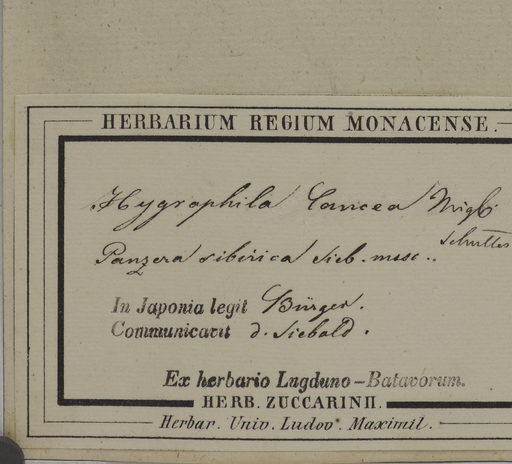 HERBARIUM REGIUM MONACENSE.
Hygrophila lancea Miqb
Schultes
Panzera sibirica Sieb. msc..
In Japonia legit Bürger.
Communicavit d. Siebold.
Ex herbario Lugduno-Batavorum.
HERB. ZUCCARINII.
Herbar. Univ. Ludov. Maximil.